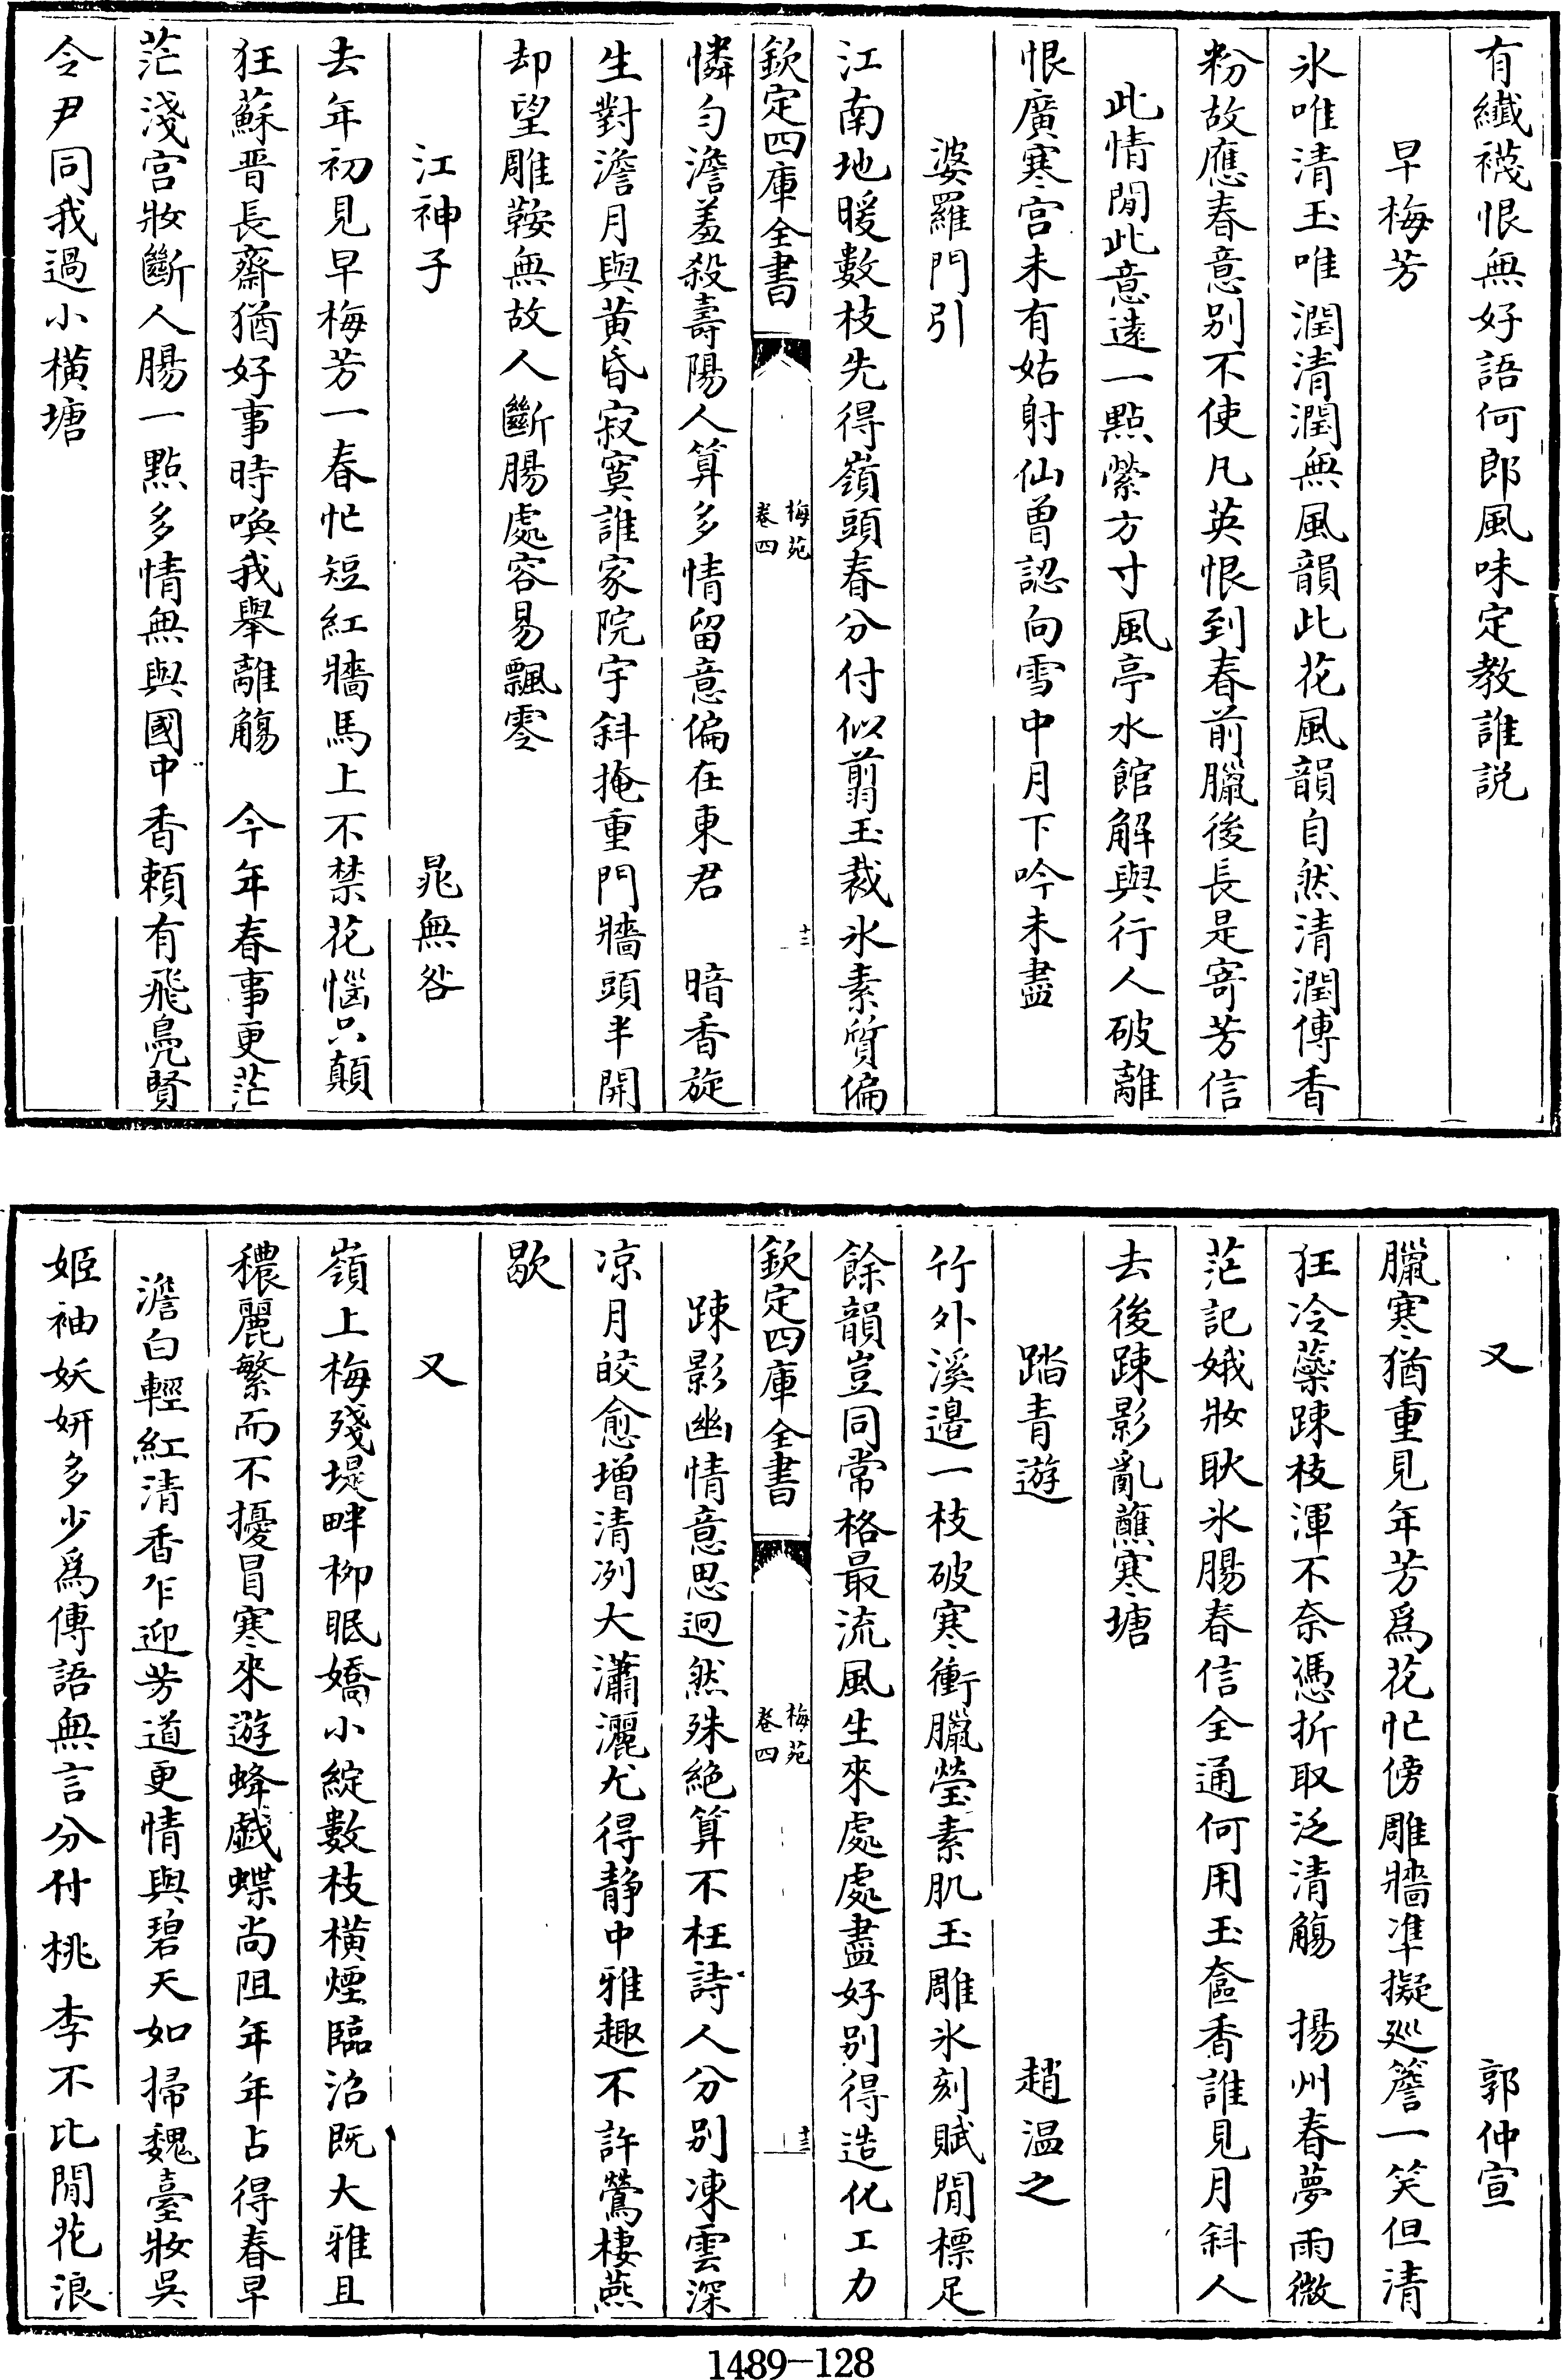 有纖襪恨無好語何郎風味定教誰説
早梅芳
氷唯清玉唯潤清潤無風韻此花風韻自然清潤傳香
粉故應春意别不使凡英恨到春前臘後長是寄芳信
此情閒此意遠一點縈方寸風亭水館解與行人破離
恨廣寒宫未有姑射仙曽認向雪中月下吟未盡
婆羅門引
江南地暖數枝先得嶺頭春分付似翦玉裁氷素質偏
欽定四庫全書
梅苑
卷四
十三
憐匀澹羞殺壽陽人算多情留意偏在東君　暗香旋
生對澹月與黄昏寂寞誰家院宇斜掩重門牆頭半開
却望雕鞍無故人斷腸處容易飄零
江神子　晁無咎
去年初見早梅芳一春忙短紅牆馬上不禁花惱只顛
狂蘇晋長齋猶好事時喚我舉離觴　今年春事更茫
茫淺宫妝斷人腸一點多情無與國中香頼有飛鳧賢
令尹同我過小横塘
又　郭仲宣
臘寒猶重見年芳爲花忙傍雕牆凖擬廵簷一笑但清
狂冷蘂踈枝渾不奈憑折取泛清觴　揚州春夢雨微
茫記娥妝耿氷腸春信全通何用玉奩香誰見月斜人
去後踈影亂蘸寒塘
踏青遊　趙温之
竹外溪邉一枝破寒衝臘瑩素肌玉雕氷刻賦閒標足
餘韻豈同常格最流風生來處處盡好别得造化工力
欽定四庫全書
梅苑
卷四
十三
踈影幽情意思迥然殊絶算不枉詩人分别凍雲深
凉月皎愈增清冽大瀟灑尤得静中雅趣不許鶯棲燕
歇
又
嶺上梅殘堤畔栁眠嬌小綻數枝横煙臨沼既大雅且
穠麗繁而不擾冒寒來遊蜂戯蝶尚阻年年占得春早
澹白輕紅清香乍迎芳道更情與碧天如掃魏臺妝吳
姬袖妖妍多少爲傳語無言分付桃李不比閒花浪
1489-128